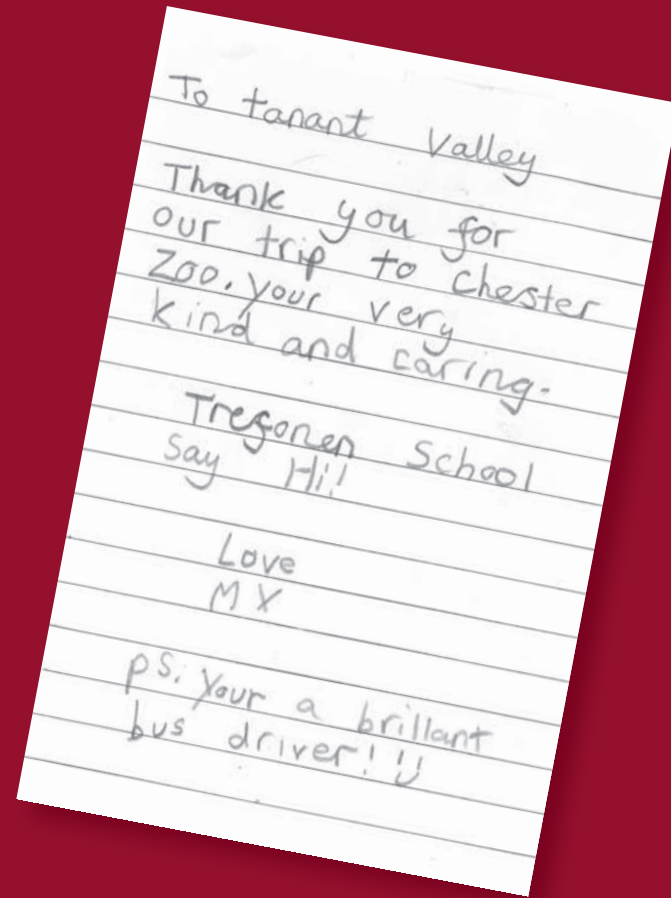 To tanant Valley
Thank you for
our trip to Chester
Zoo. your very
kind and caring.
Tregonen School
Say Hi!
Love
M X
ps. Your a brillant
bus driver!